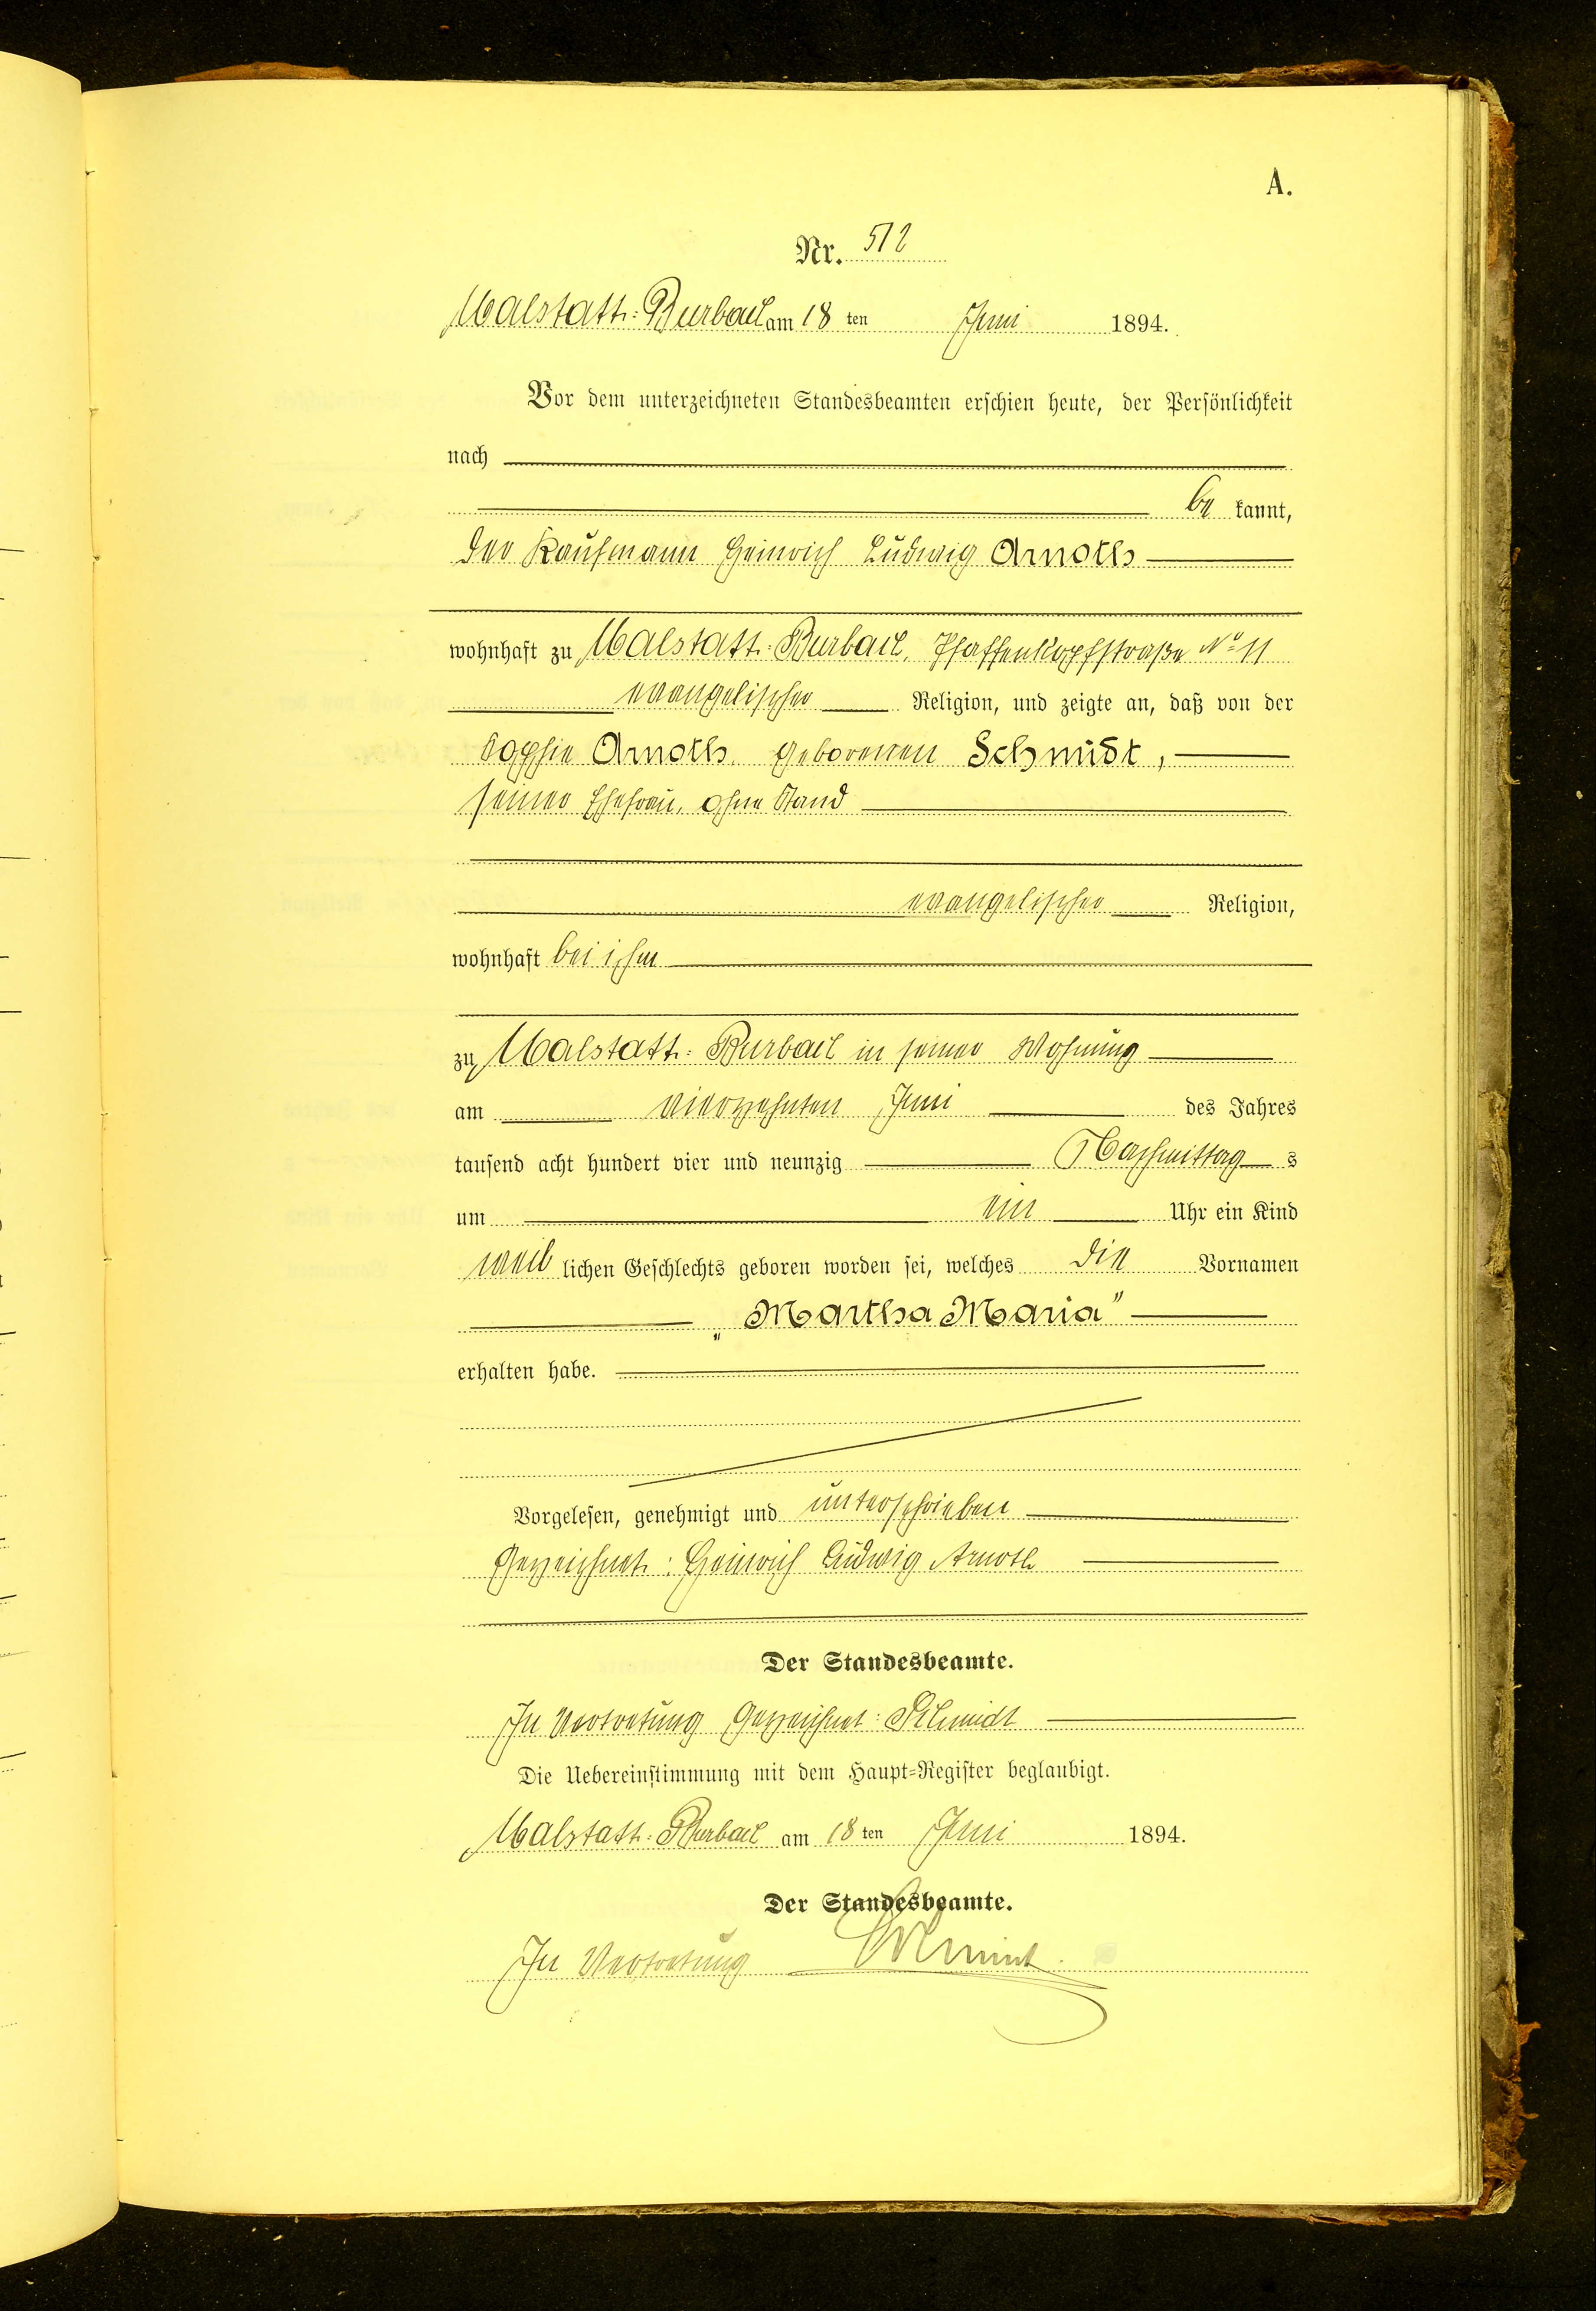 A.
Nr. 512
Malstatt-Burbach am 18 ten Juni 1894.
Vor dem unterzeichneten Standesbeamten erschien heute, der Persönlichkeit
nach
be kannt,
der Kaufmann Heinrich Ludwig Arnoth
wohnhaft zu Malstatt-Burbach, Pfaffenkopfstraße No 11
evangelischer Religion, und zeigte an, daß von der
Sophie Arnoth, geborenen Schmidt,
seiner Ehefrau, ohne Stand
evangelischer Religion,
wohnhaft bei ihm
zu Malstatt-Burbach in seiner Wohnung
am vierzehnten Juni des Jahres
tausend acht hundert vier und neunzig Nachmittag s
um ein Uhr ein Kind
weib lichen Geschlechts geboren worden sei, welches die Vornamen
„Martha Maria"
erhalten habe.
Vorgelesen, genehmigt und unterschrieben
Gezeichnet: Heinrich Ludwig Arnoth
Der Standesbeamte.
In Vertretung gezeichnet: Schmidt
Die Uebereinstimmung mit dem Haupt-Register beglaubigt.
Malstatt-Burbach am 18 ten Juni 1894.
Der Standesbeamte.
In Vertretung Schmidt.